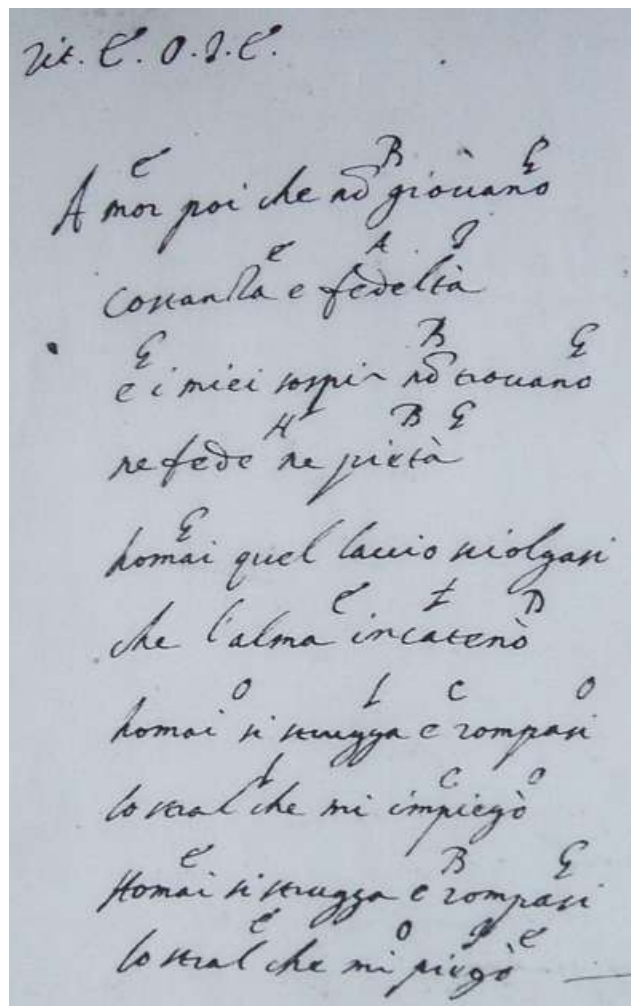 Rit. E. O. I. E.
E B G
Amor poi che nō giòuano
e A I
Costanza e fedeltà
G B G
e i miei sospir nō trouano
H B G
ne fede ne pietà
G
homai quel laccio sciolgasi
e I
che l'alma incatenò
O L C O
homai si strugga e rompasi
L C O
lo stral che mi impiegò
e B G
Homai si strugga e rompasi
e O e
lo stral che mi piegò